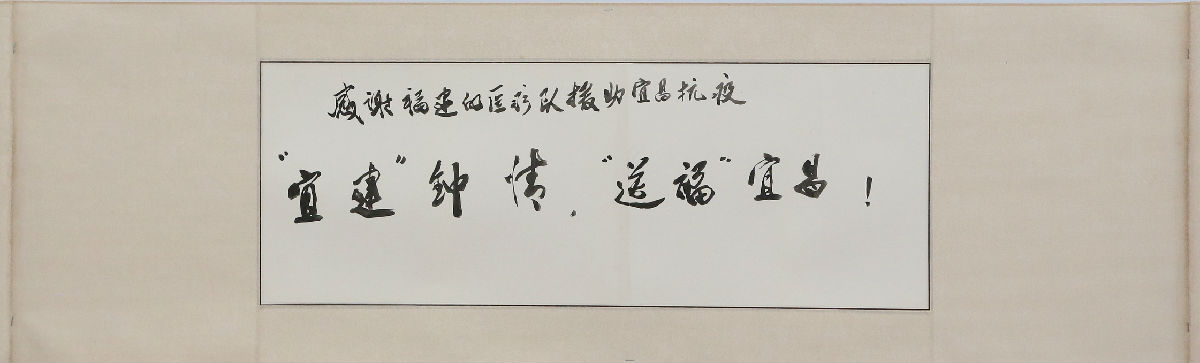 感谢福建的医疗队援助宜昌抗疫
“宜建”钟情，“送福”宜昌！